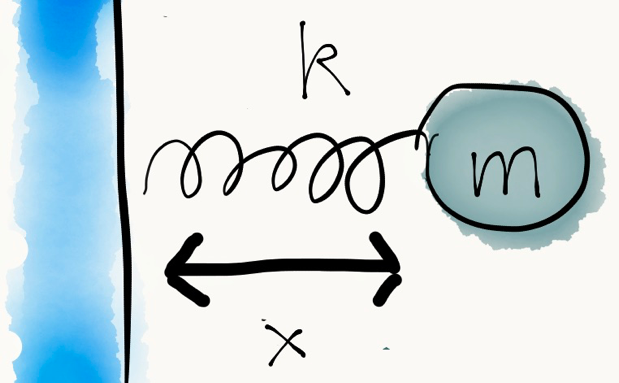 k
m
x